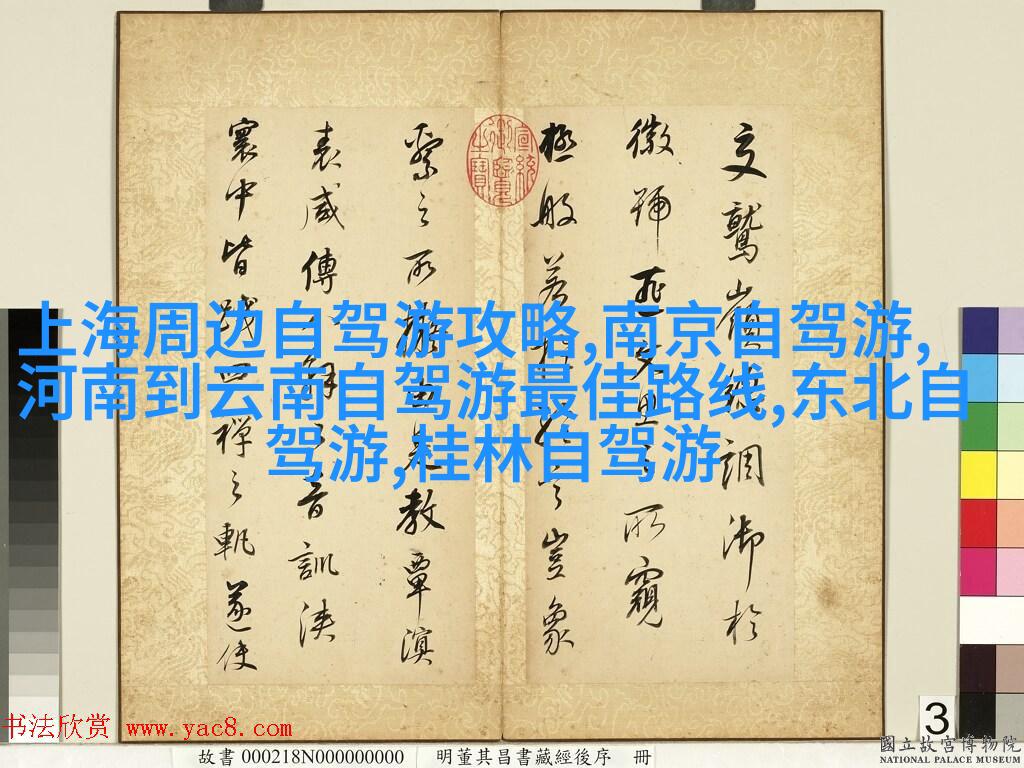 上海周边自驾游攻略,南京自驾游,
河南到云南自驾游最佳路线,东北自
驾游,桂林自驾游
文鷲嶺繞調御於
徽號延
所窺
極般若
豈象
繫之所
教覃溟
表威傳
音訓浹
寰中皆踐四禪之軌遂使
3
书法欣赏 www.yac8.com
故書 000218N000000000 明董其昌書藏經後序 冊
國立故宮博物院
NATIONAL PALACE MUSEUM